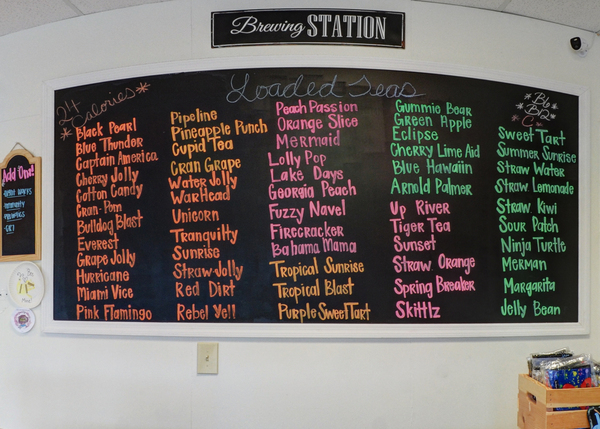 Brewing STATION
Loaded Teas
24
Calories
Black Pearl
Blue Thunder
Captain America
Cherry Jolly
Cotton Candy
Cran-Pom
Bulldog Blast
Everest
Grape Jolly
Hurricane
Miami Vice
Pink Flamingo
Pipeline
Pineapple Punch
Cupid Tea
Cran Grape
Water Jolly
WarHead
Unicorn
Tranquilty
Sunrise
Straw-Jolly
Red Dirt
Rebel Yell
Peach Passion
Orange Slice
Mermaid
Lolly Pop
Lake Days
Georgia Peach
Fuzzy Navel
Firecracker
Bahama Mama
Tropical Sunrise
Tropical Blast
Purple SweetTart
Gummie Bear
Green Apple
Eclipse
Cherry Lime Aid
Blue Hawaiin
Arnold Palmer
Up River
Tiger Tea
Sunset
Straw Orange
Spring Breaker
Skittlz
B6
B12
C
Sweet Tart
Summer Sunrise
Straw Water
Straw Lemonade
Straw Kiwi
Sour Patch
Ninja Turtle
Merman
Margarita
Jelly Bean
Add Ons!